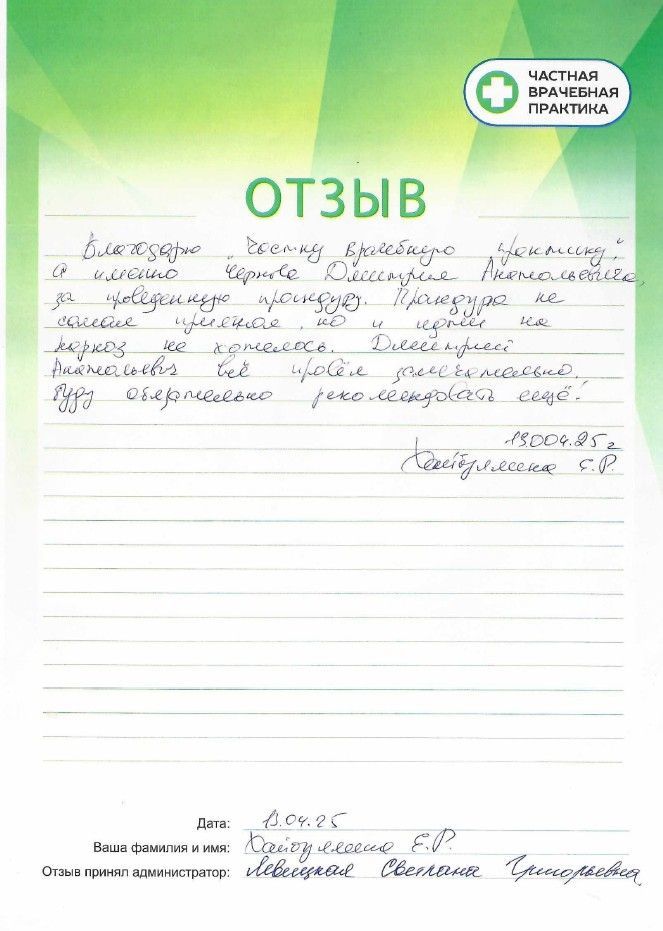 ЧАСТНАЯ
ВРАЧЕБНАЯ
ПРАКТИКА
ОТЗЫВ
Благодарю "Частну врачебную практику".
А именно Чернова Дмитрия Анатольевича,
за проведенную процедуру. Процедура не
самая приятная, но и идти на
наркоз не хотелось. Дмитрий
Анатольевич всё провёл замечательно.
Буду обязательно рекомендовать ещё!
Е.Р.
Дата: 13.04.25
Ваша фамилия и имя: Е.Р.
Отзыв принял администратор: Левицкая Светлана Григорьевна